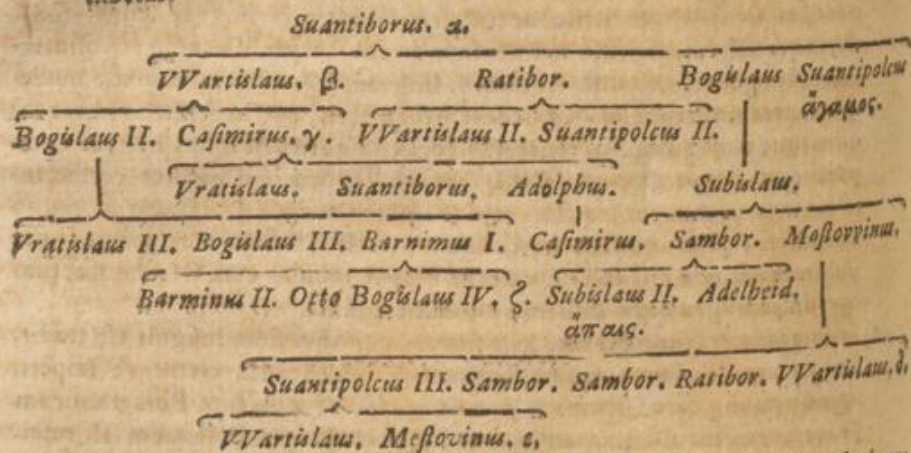 Suantiborus. α.
VVartislaus. β. Ratibor. Bogislaus Suantipolcus
ἄγαμος.
Bogislaus II. Casimirus. γ. VVartislaus II. Suantipolcus II.
Vratislaus. Suantiborus. Adolphus. Subislaus.
Vratislaus III. Bogislaus III. Barnimus I. Casimirus. Sambor. Mostovvinus.
Barminus II. Otto Bogislaus IV. ζ. Subislaus II. Adelheid.
ἄπαις.
Suantipolcus III. Sambor. Sambor. Ratibor. VVartislaus. δ.
VVartislaus. Mestovinus. ε.